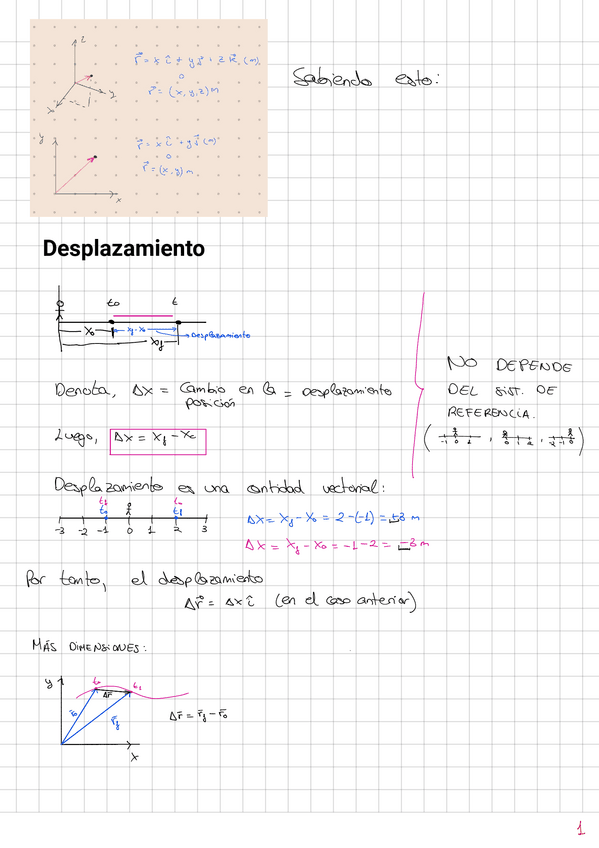 z
r⃗ = x î + y ĵ + z k̂, (m)
o
r⃗ = (x, y, z) m
x
y
Sabiendo esto:
y
r⃗ = x î + y ĵ (m)
o
r⃗ = (x, y) m
x
Desplazamiento
t₀ t
x₀ x𝑓 - x₀ → Desplazamiento
x𝑓
Denota, Δx = Cambio en la posición = desplazamiento
Luego, Δx = x𝑓 - x₀
NO DEPENDE
DEL SIST. DE
REFERENCIA.
Desplazamiento es una cantidad vectorial:
t𝑓 t₀
t₀ t𝑓
-3 -2 -1 0 1 2 3
Δx = x𝑓 - x₀ = 2 - (-1) = +3 m
Δx = x𝑓 - x₀ = -1 - 2 = -3 m
Por tanto, el desplazamiento
Δr⃗ = Δx î (en el caso anterior)
MÁS DIMENSIONES:
y t₀ t𝑓
Δr̄
r̄₀ r̄𝑓
Δr̄ = r̄𝑓 - r̄₀
x
1